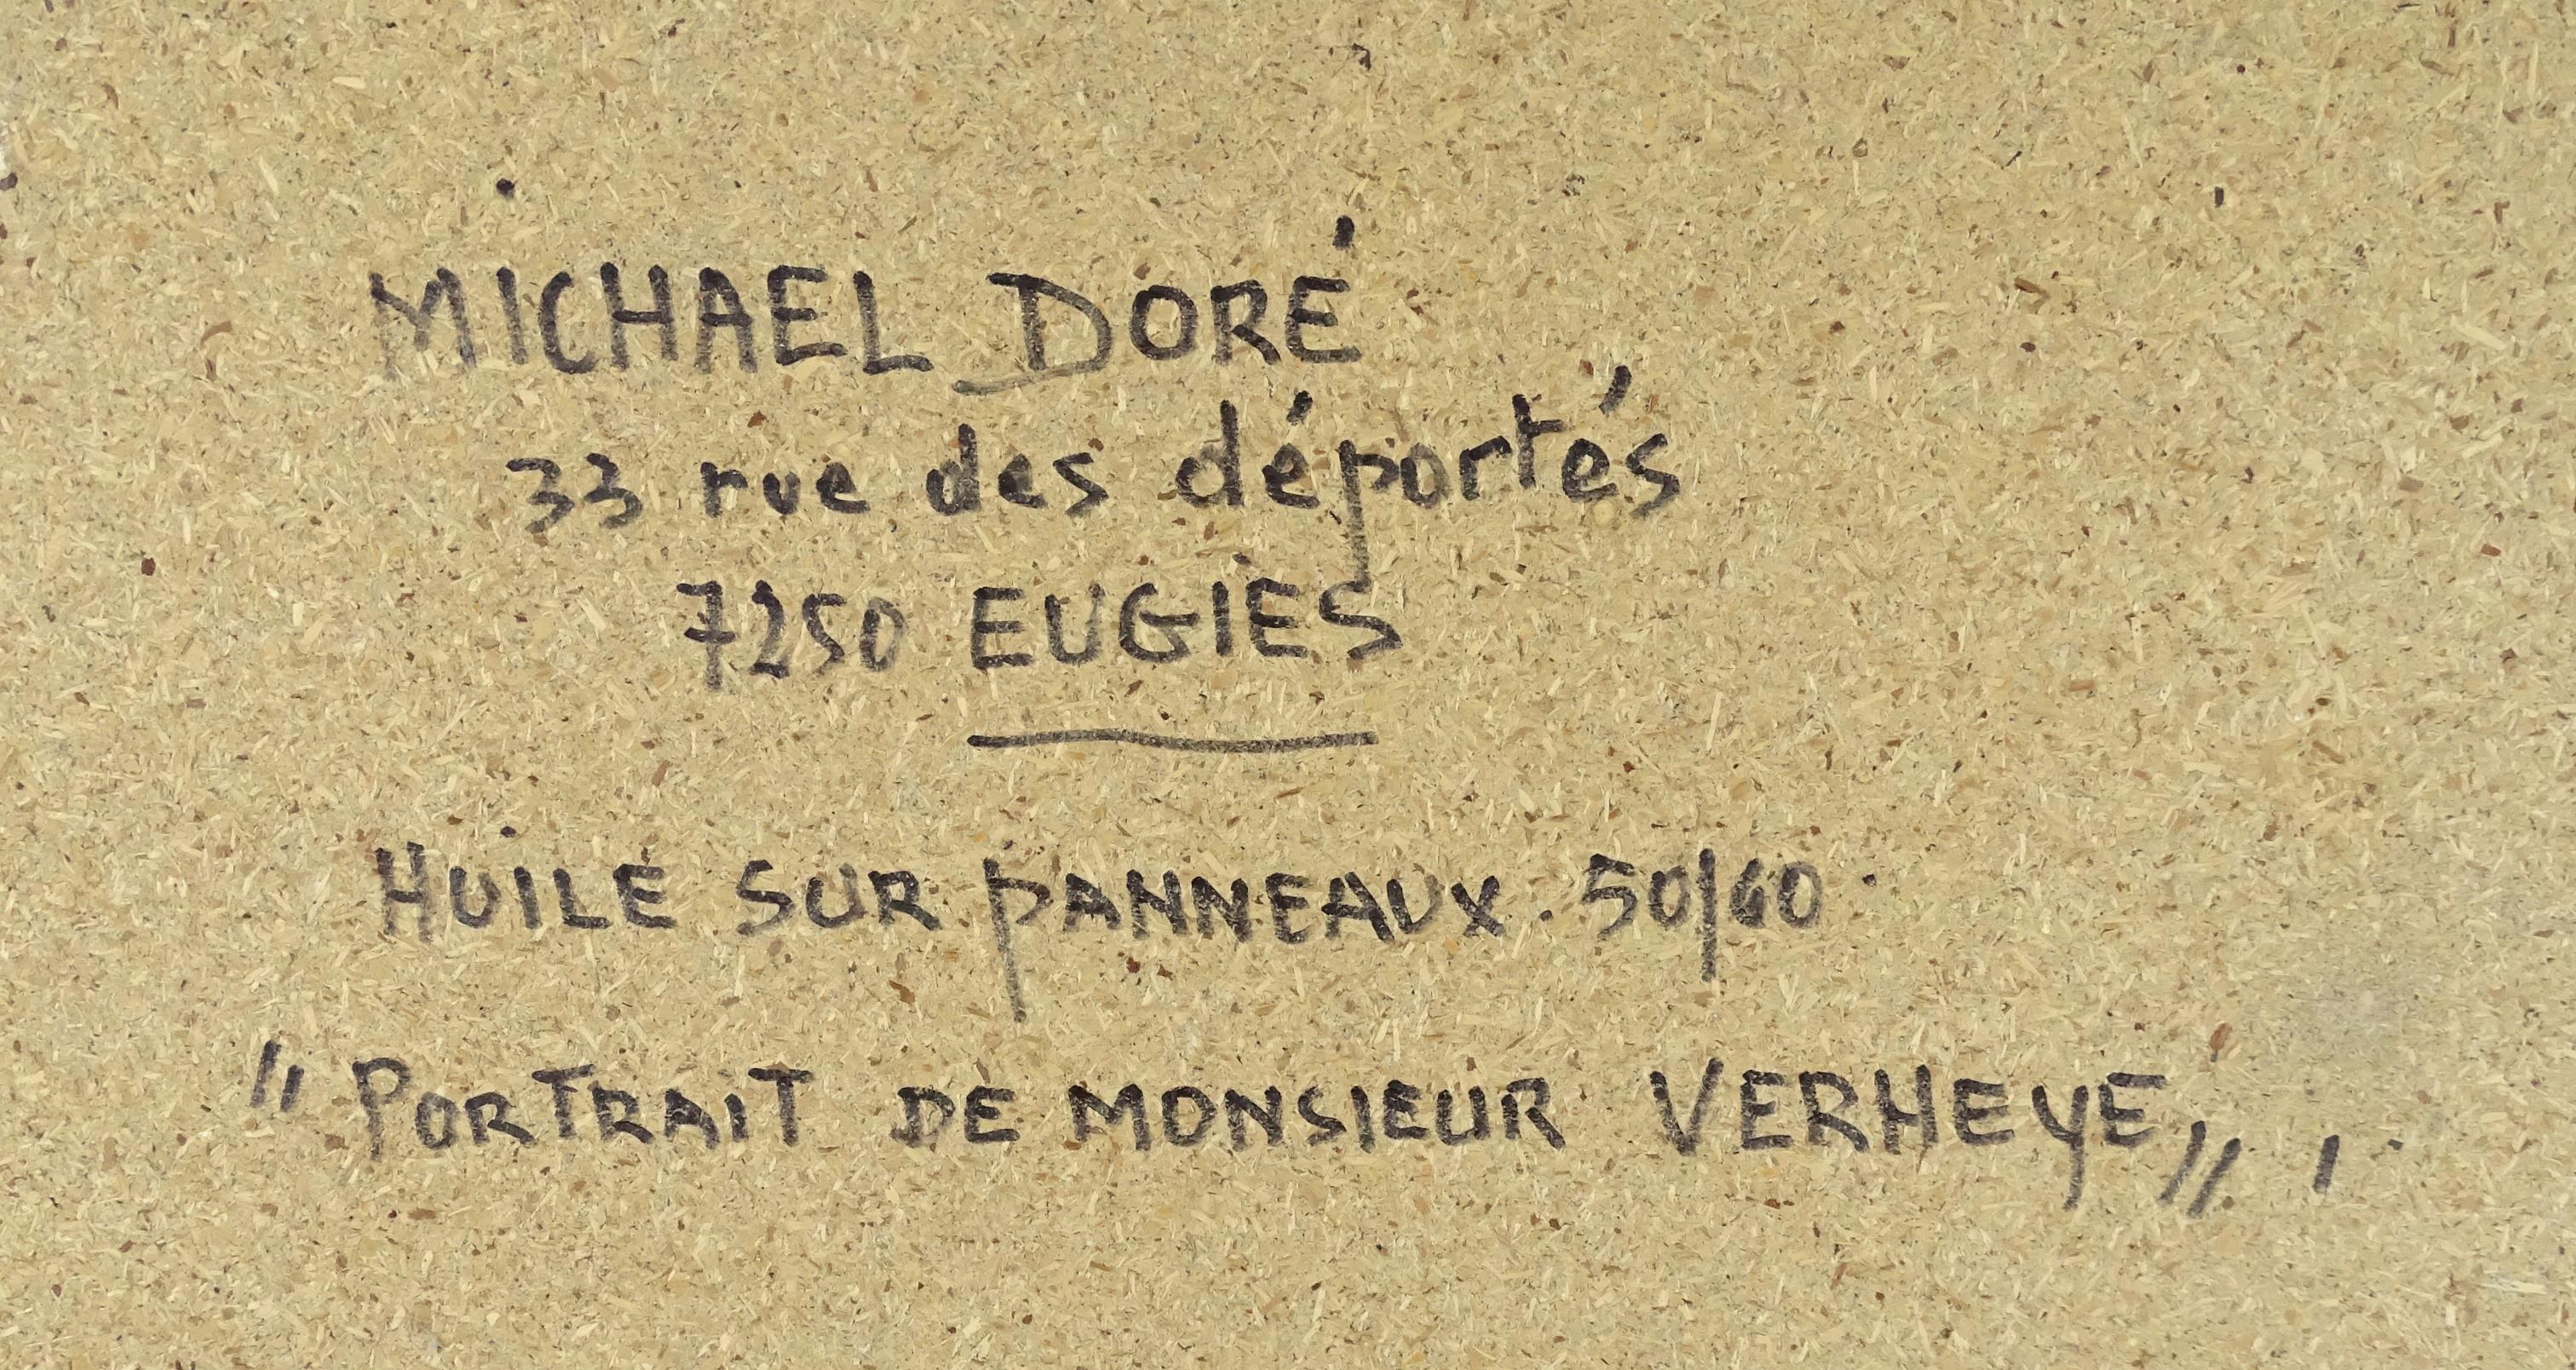 MICHAEL DORÉ
33 rue des déportés
7250 EUGIES
HUILE SUR PANNEAUX. 50/60.
"PORTRAIT DE MONSIEUR VERHEYE,, ,.